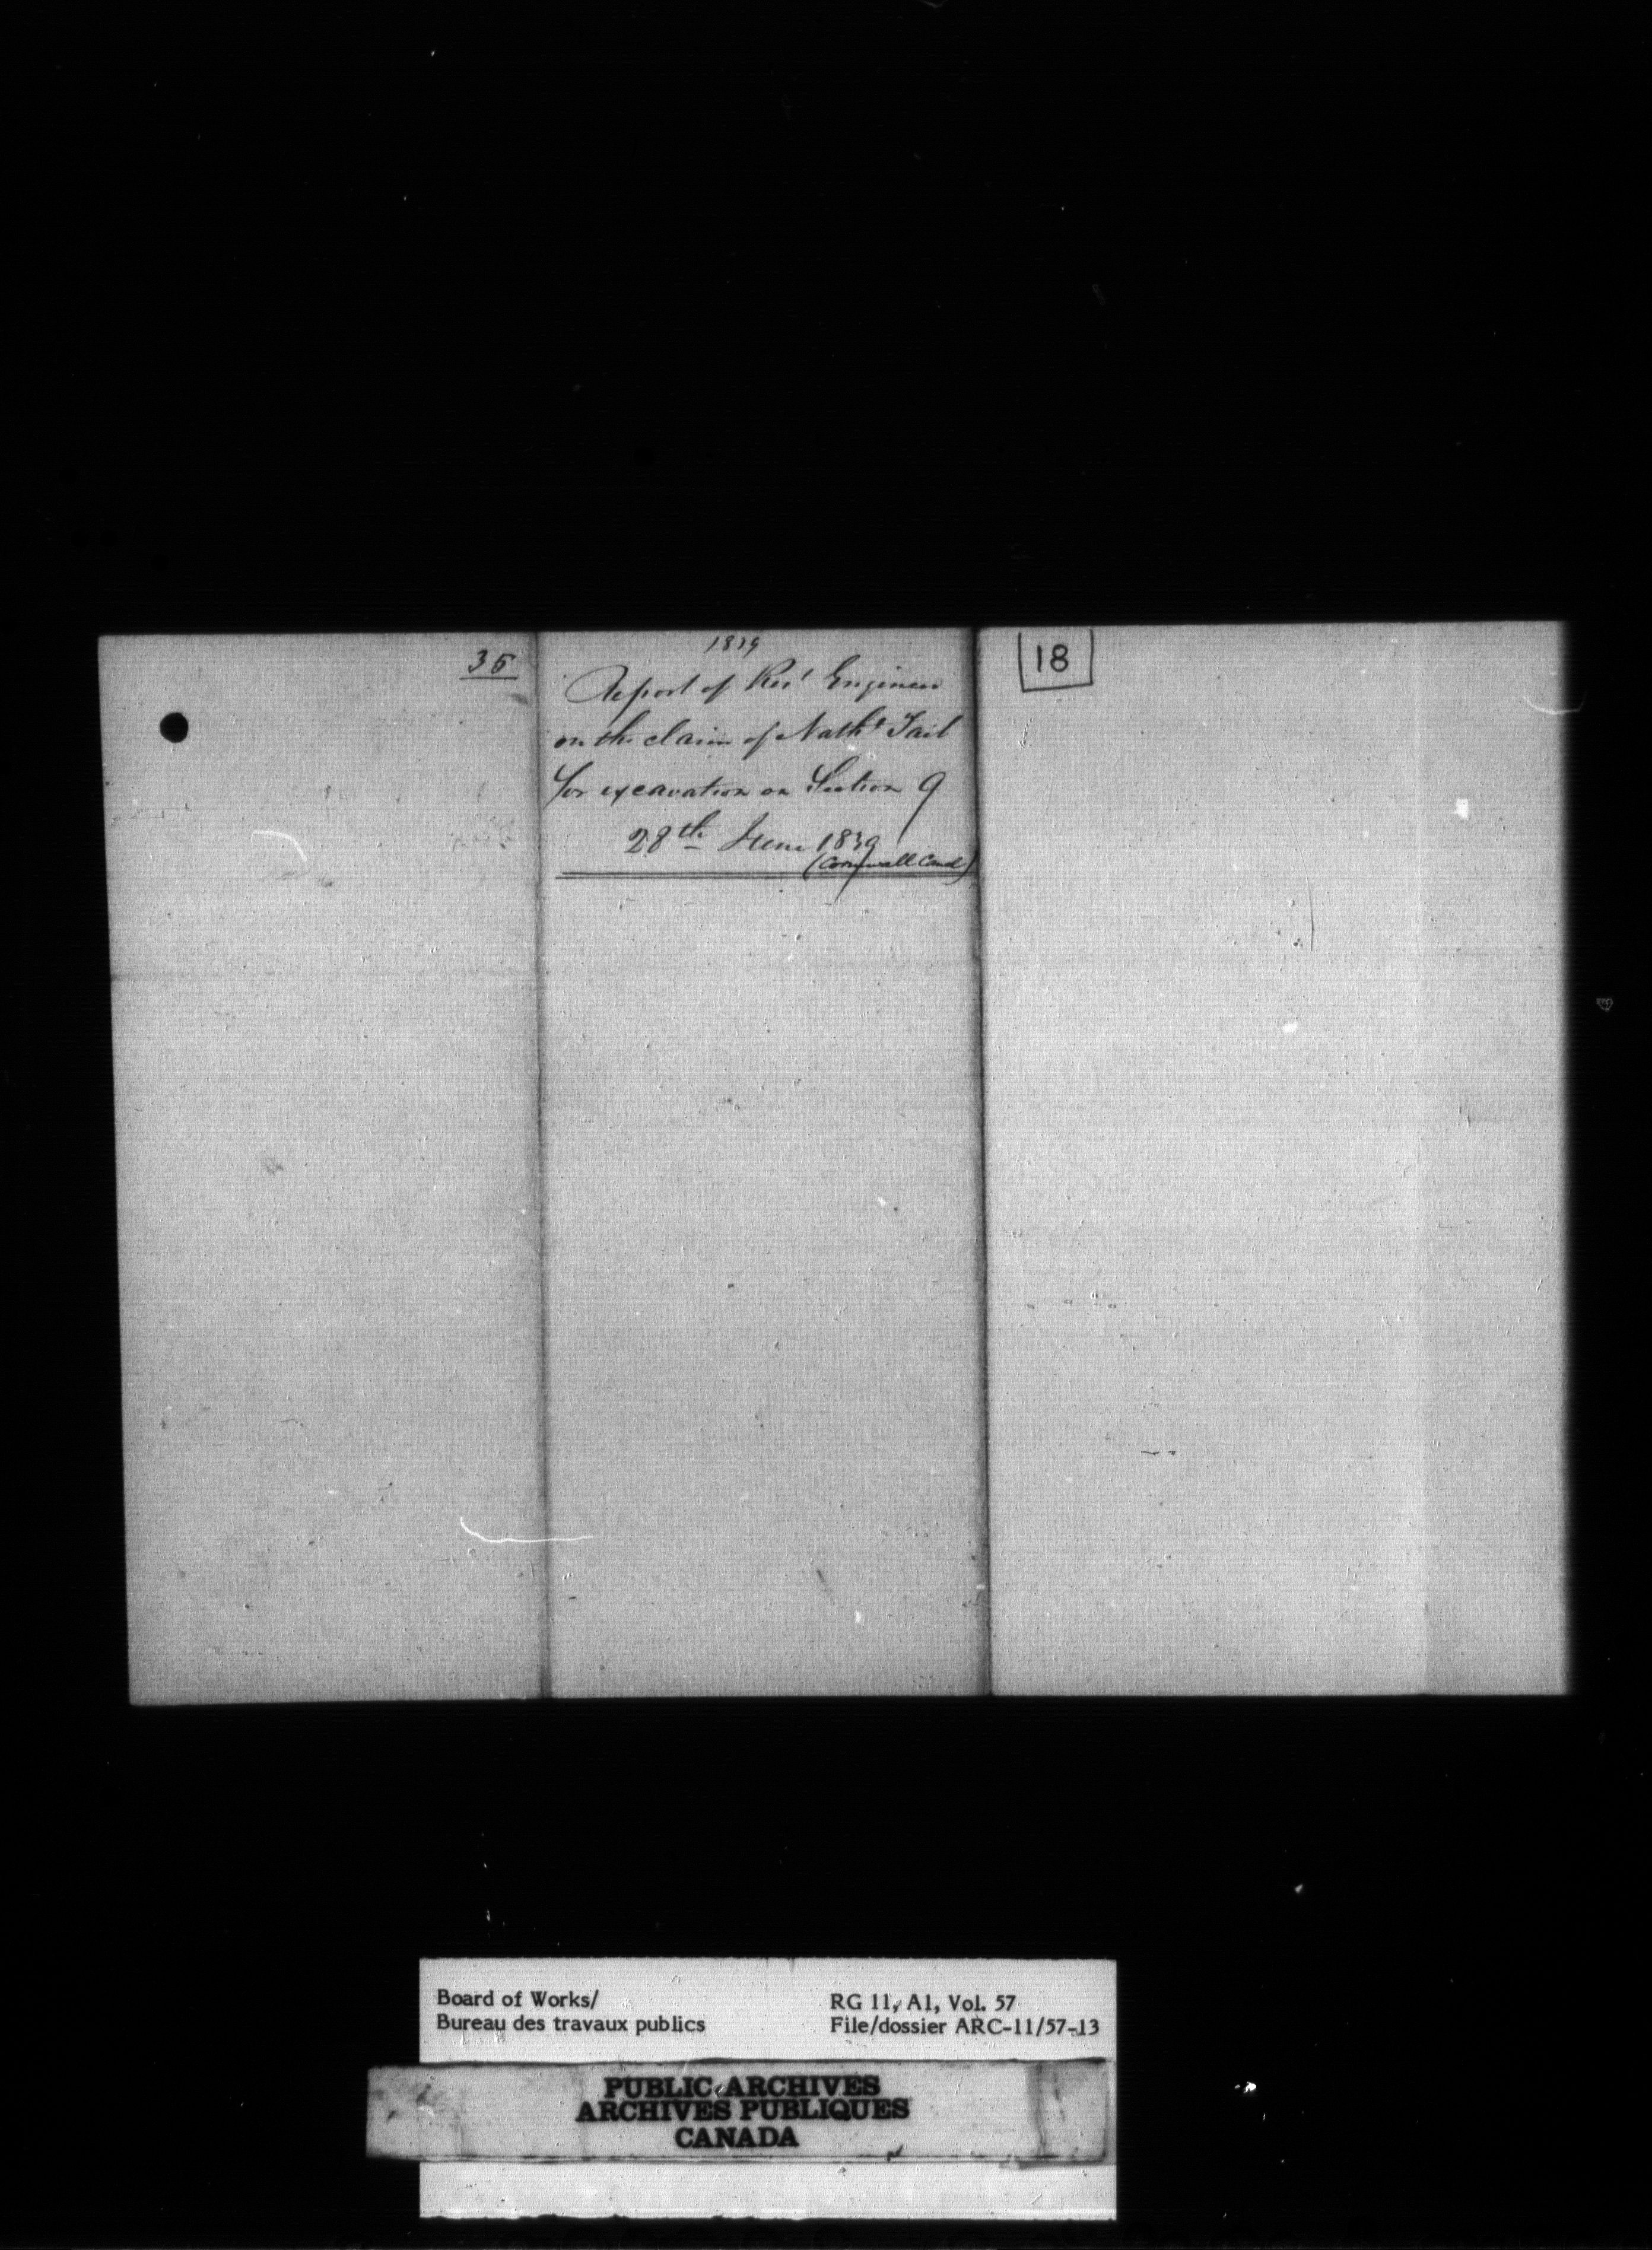 35
1839
Report of Rest Engineer
on the claim of Nathl Tait
for excavation on Section 9
28th June 1839
(Cornwall Canal)
18
Board of Works/
Bureau des travaux publics
RG 11, A1, Vol. 57
File/dossier ARC-11/57-13
PUBLIC ARCHIVES
ARCHIVES PUBLIQUES
CANADA